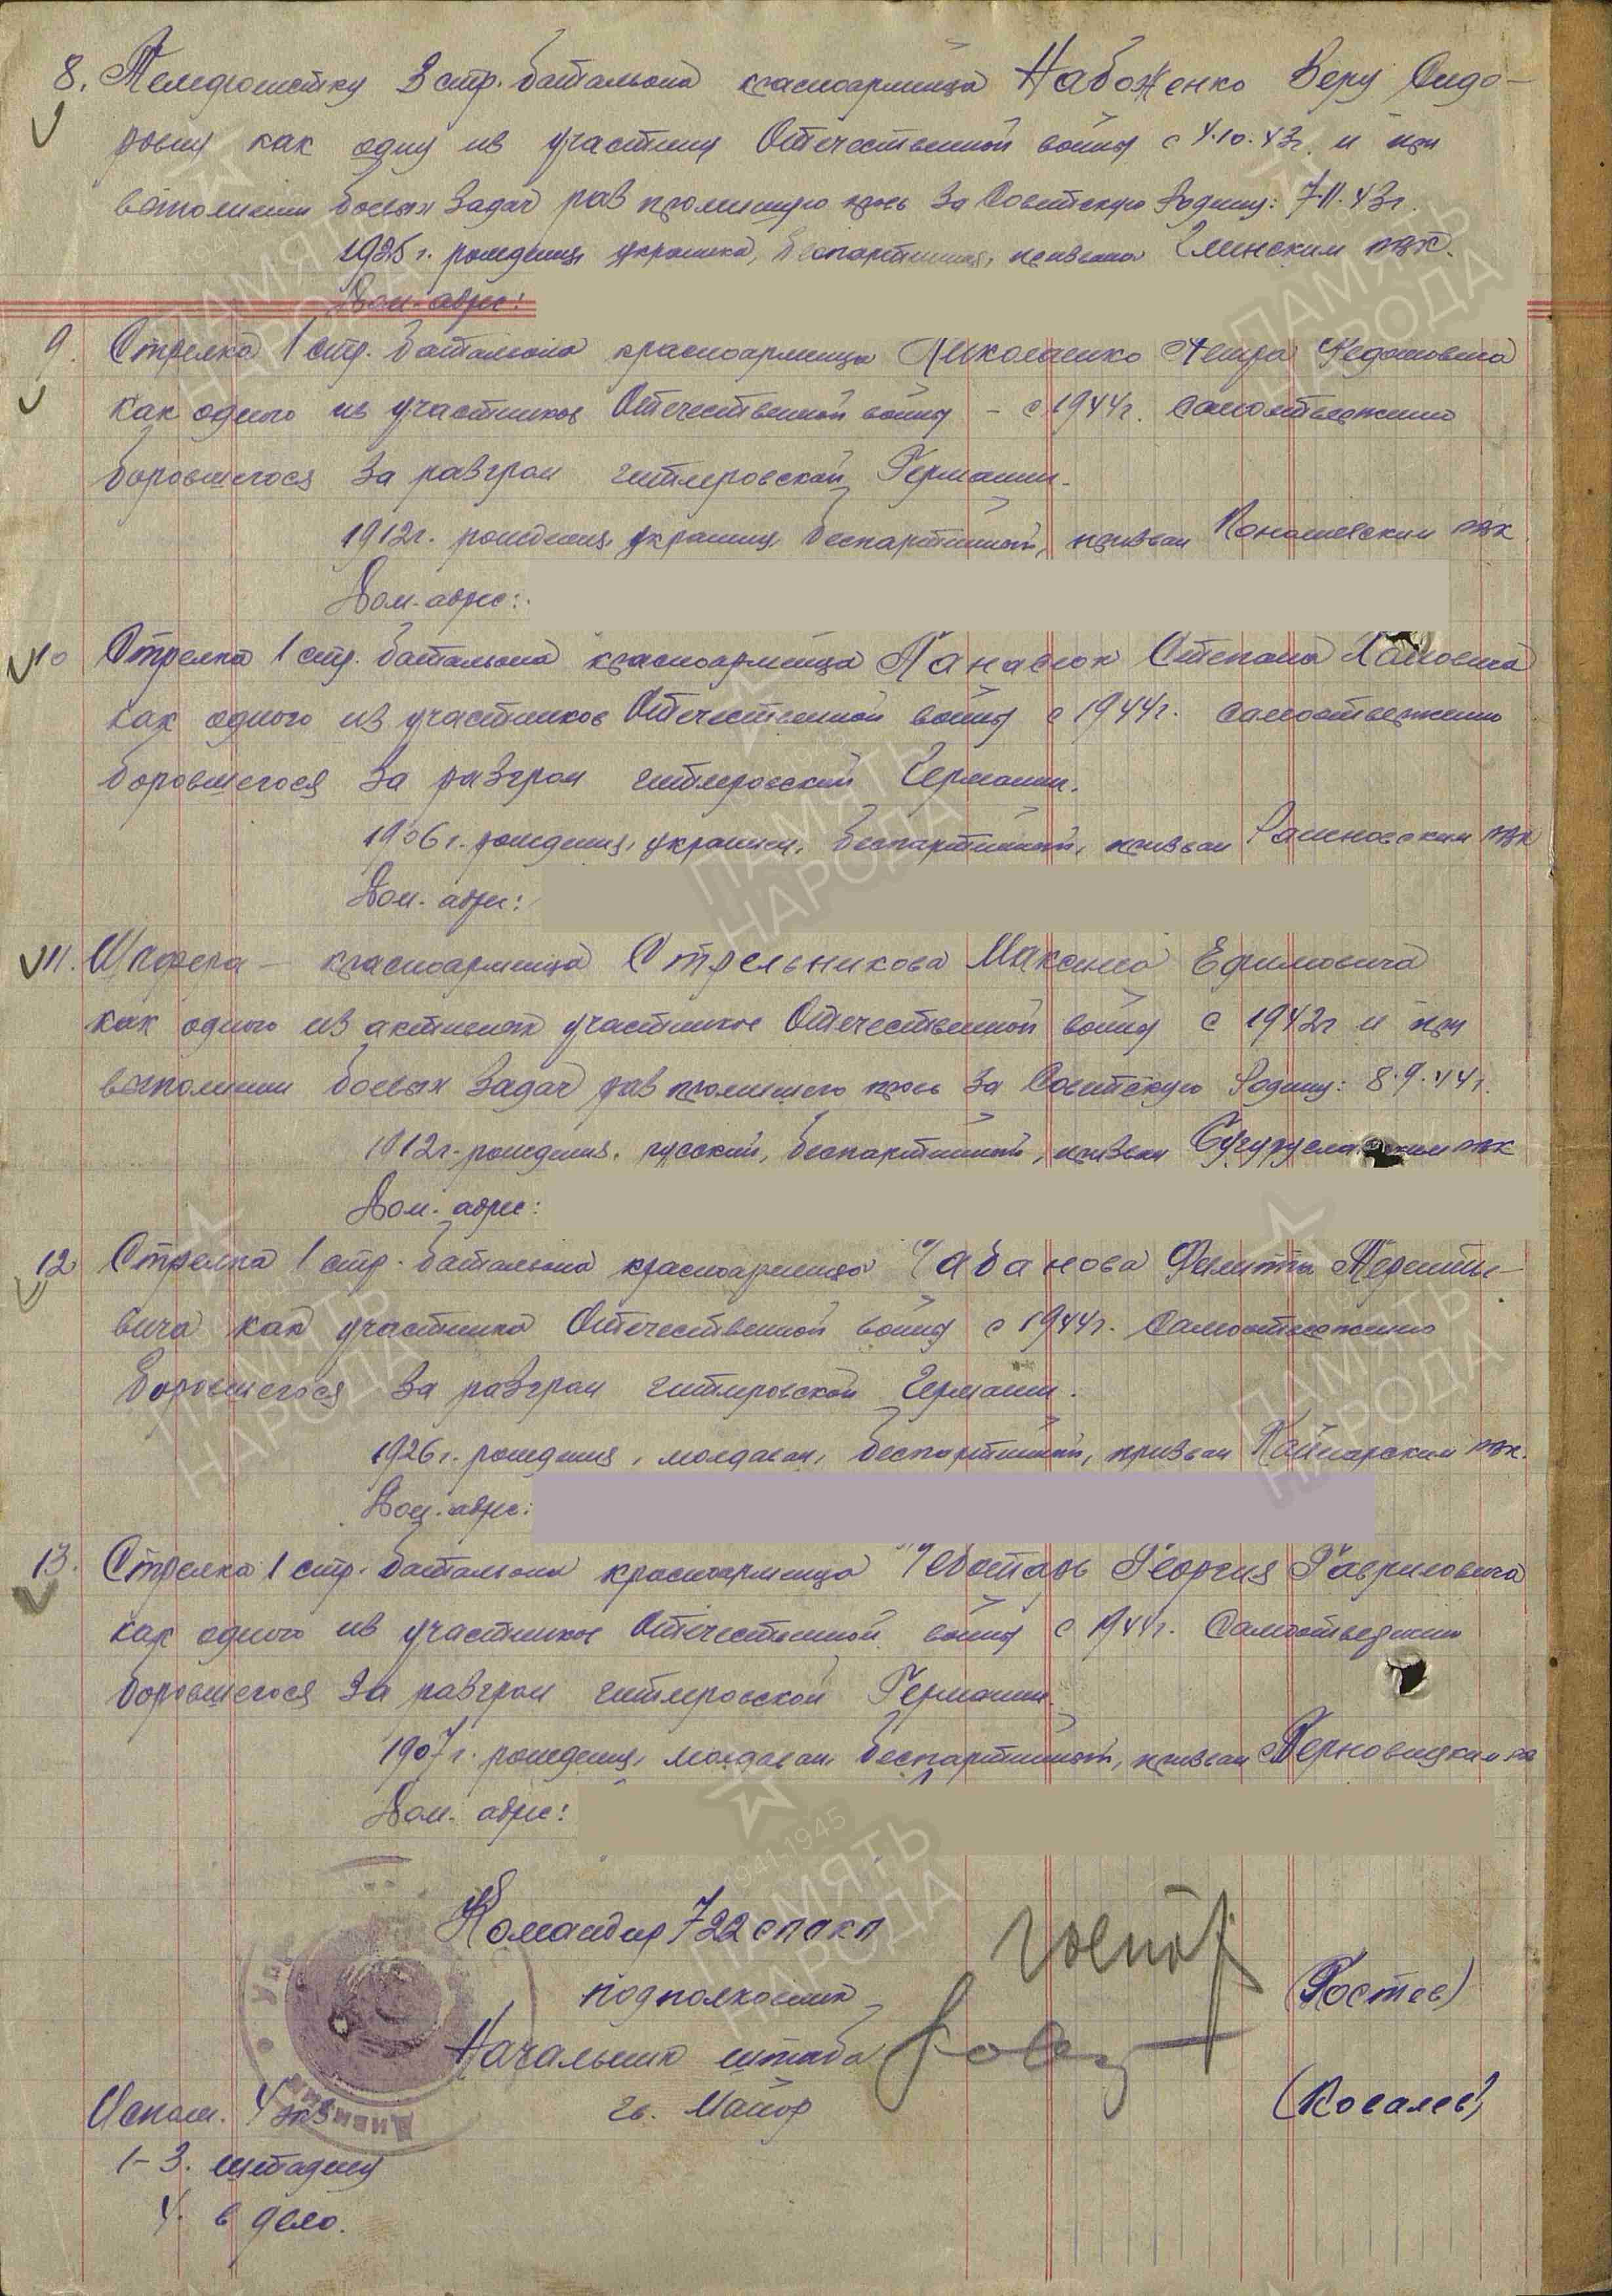 8. Телефонистку 3 стр. батальона красноармейца Набоженко Веру Сидо-
ровну как одну из участниц Отечественной войны с 4.10.43г. и при
выполнении боевых задач раз пролившую кровь за Советскую Родину: 7.11.43г.
1925 г. рождения, украинка, беспартийная, призвана Глинским РВК.
Дом. адрес:
9. Стрелка 1 стр. батальона красноармейца Николаенко Петра Федотовича
как одного из участников Отечественной войны - с 1944г. самоотверженно
боровшегося за разгром гитлеровской Германии.
1912г. рождения, украинец, беспартийный, призван РВК
Дом. адрес:
10 Стрелка 1 стр. батальона красноармейца Панасюк Степана
как одного из участников Отечественной войны с 1944г. самоотверженно
боровшегося за разгром гитлеровской Германии.
1906 г. рождения, украинец, беспартийный, призван РВК
Дом. адрес:
11. Шофера - красноармейца Стрельникова Максима Ефимовича
как одного из активных участников Отечественной войны с 1942г и при
выполнении боевых задач раз пролившего кровь за Советскую Родину: 8.9.44г.
1912г. рождения, русский, беспартийный, призван РВК
Дом. адрес:
12 Стрелка 1 стр. батальона красноармейца Чабанова Филиппа Теренть-
вича как участника Отечественной войны с 1944г. самоотверженно
боровшегося за разгром гитлеровской Германии.
1926 г. рождения, молдаван, беспартийный, призван Кайнарским РВК.
Дом. адрес:
13. Стрелка 1 стр. батальона красноармейца Чеботарь Георгия Гавриловича
как одного из участников Отечественной войны с 1944г. самоотверженно
боровшегося за разгром гитлеровской Германии.
1907 г. рождения, молдаван, беспартийный, призван
Дом. адрес:
Командир 722 спакп
подполковник (Гостев)
Начальник штаба
гв. Майор (Ковалев)
Исполн. 4 экз
1-3. штадив
4. в дело.
ПАМЯТЬ
НАРОДА
1941-1945